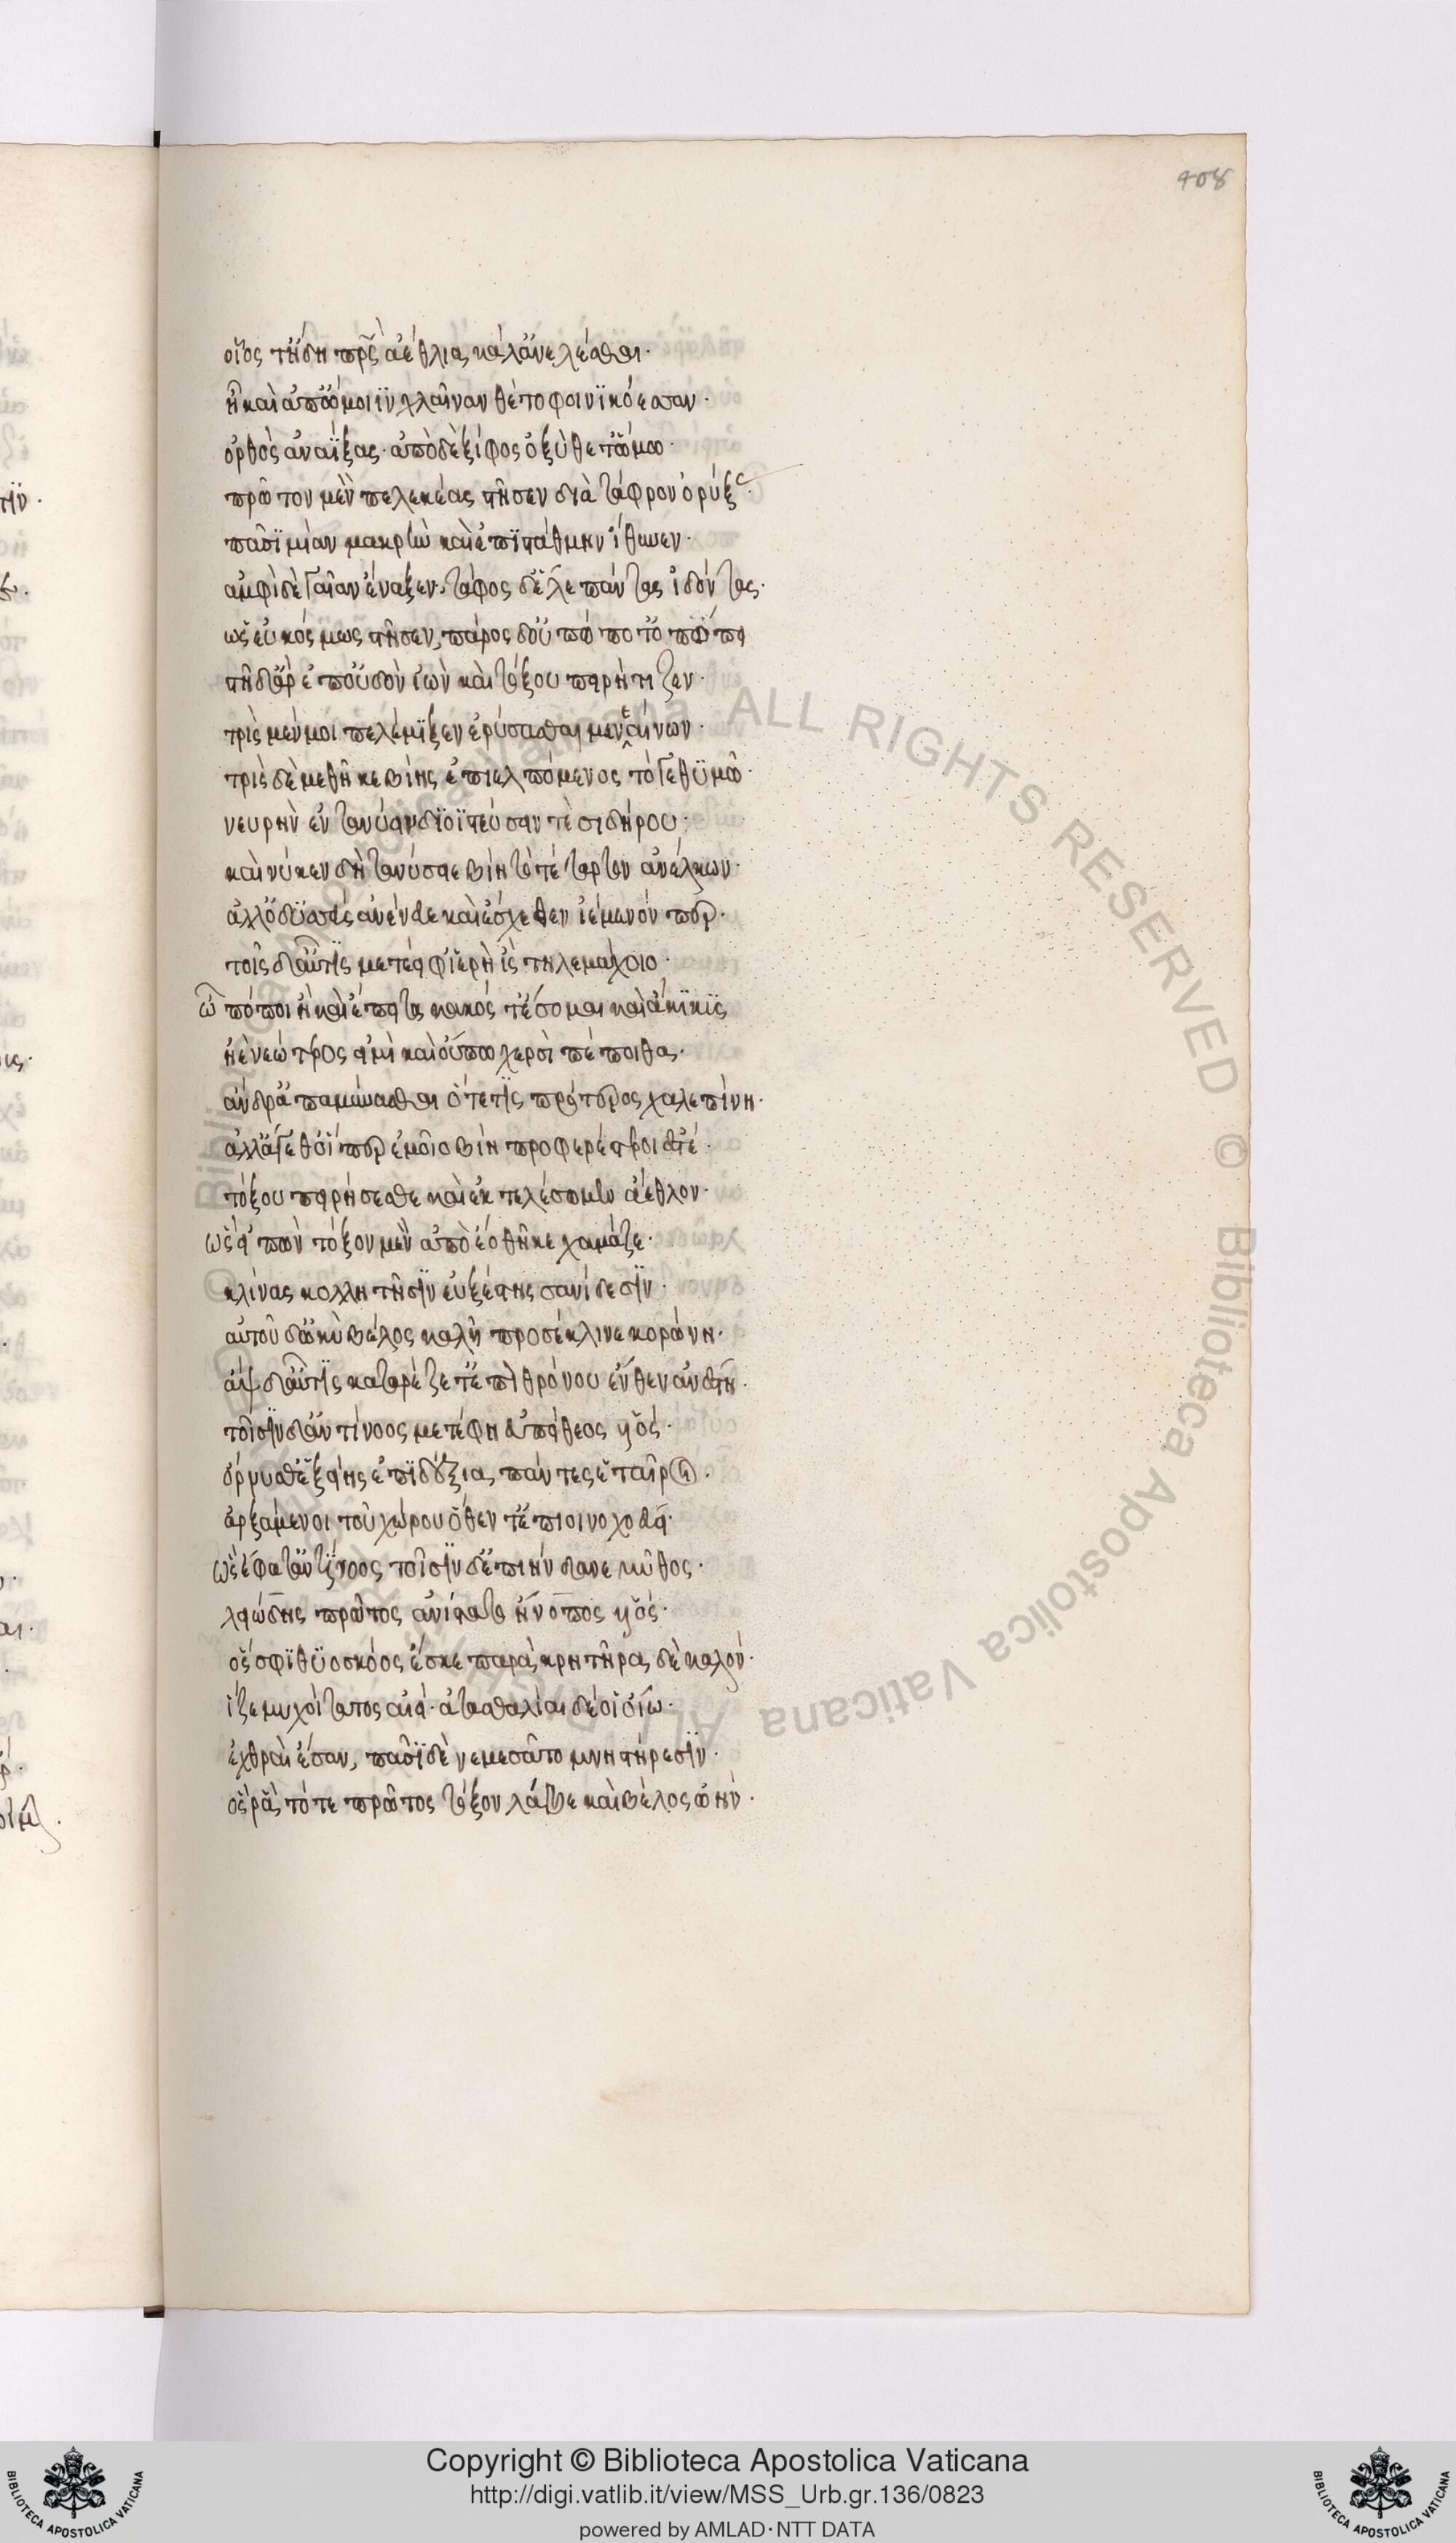 408
οἷος τ' ἤδη πατρὸς ἀέθλια κάλ' ἀνελέσθαι·
ἦ καὶ ἀπ' ὤμοιιν χλαῖναν θέτο φοινικόεσσαν·
ὀρθὸς ἀναΐξας· ἀπὸ δὲ ξίφος ὀξὺ θέτ' ὤμω·
πρῶτον μὲν πελεκέας στῆσεν διὰ τάφρον ὀρύξας·
πᾶσι μίαν μακρὴν καὶ ἐπὶ στάθμην ἴθυνεν·
ἀμφὶ δὲ γαῖαν ἔναξεν, τάφος δ' ἕλε πάντας ἰδόντας·
ὡς εὐκόσμως στῆσεν, πάρος δ' οὔπώποτ' ὀπώπει
στῆ δ' ἄρ' ἐπ' οὐδὸν ἰὼν καὶ τόξου πειρήτιζεν·
τρὶς μέν μιν πελέμιξεν ἐρύσασθαι μενεαίνων·
τρὶς δὲ μεθῆκε βίης ἐπιελπόμενος τόγε θυμῶ·
νευρὴν ἐντανύειν διοϊστεύσειν τε σιδήρου·
καί νύ κεν δὴ τάνυσσε βίη τὸ τέταρτον ἀνέλκων·
ἀλλ' ὀδυσσεὺς ἀνένευε καὶ ἔσχεθεν ἱέμενόν περ·
τοῖς δ' αὖτις μετέειφ' ἱερὴ ἲς τηλεμάχοιο·
ὢ πόποι ἦ καὶ ἔπειτα κακός τ' ἔσομαι καὶ ἄκικις
ἠὲ νεώτερος εἰμὶ καὶ οὔπω χερσὶ πέποιθα·
ἄνδρ' ἀπαμύνασθαι ὅτε τις πρότερος χαλεπήνη·
ἀλλ' ἄγεθ' οἵπερ ἐμοῖο βίη προφερέστεροι ἐστέ·
τόξου πειρήσεσθε καὶ ἐκτελέσωμεν ἄεθλον·
ὣς εἰπὼν τόξον μὲν ἀπὸ ἕο θῆκε χαμάζε·
κλίνας κολλητῆσιν ἐυξέστης σανίδεσιν·
αὐτοῦ δ' ὠκὺ βέλος καλῆ προσέκλινε κορώνη·
ἂψ δ' αὖτις κατ' ἄρ' ἕζετ' ἐπὶ θρόνου ἔνθεν ἀνέστη·
τοῖσιν δ' ἀντίνοος μετέφη εὐπείθεος υἱός·
ὄρνυσθ' ἑξείης ἐπιδέξια πάντες ἑταῖροι·
ἀρξάμενοι τοῦ χώρου ὅθεν τ' ἐπιοινοχοεύει·
ὣς ἔφατ' ἀντίνοος τοῖσιν δ' ἐπιήνδανε μῦθος·
λειώδης πρῶτος ἀνίστατο ἤνοπος υἱός·
ὅς σφι θυοσκόος ἔσκε παρὰ κρητῆρα δὲ καλὸν·
ἷζε μυχοίτατος αἰεί· ἀτασθαλίαι δέ οἱ οἴω·
ἐχθραὶ ἔσαν, πᾶσι δὲ νεμέσα το μνηστήρεσιν·
ὅς ῥα τότε πρῶτος τόξον λάβε καὶ βέλος ὠκύ·
Copyright © Biblioteca Apostolica Vaticana
http://digi.vatlib.it/view/MSS_Urb.gr.136/0823
powered by AMLAD·NTT DATA